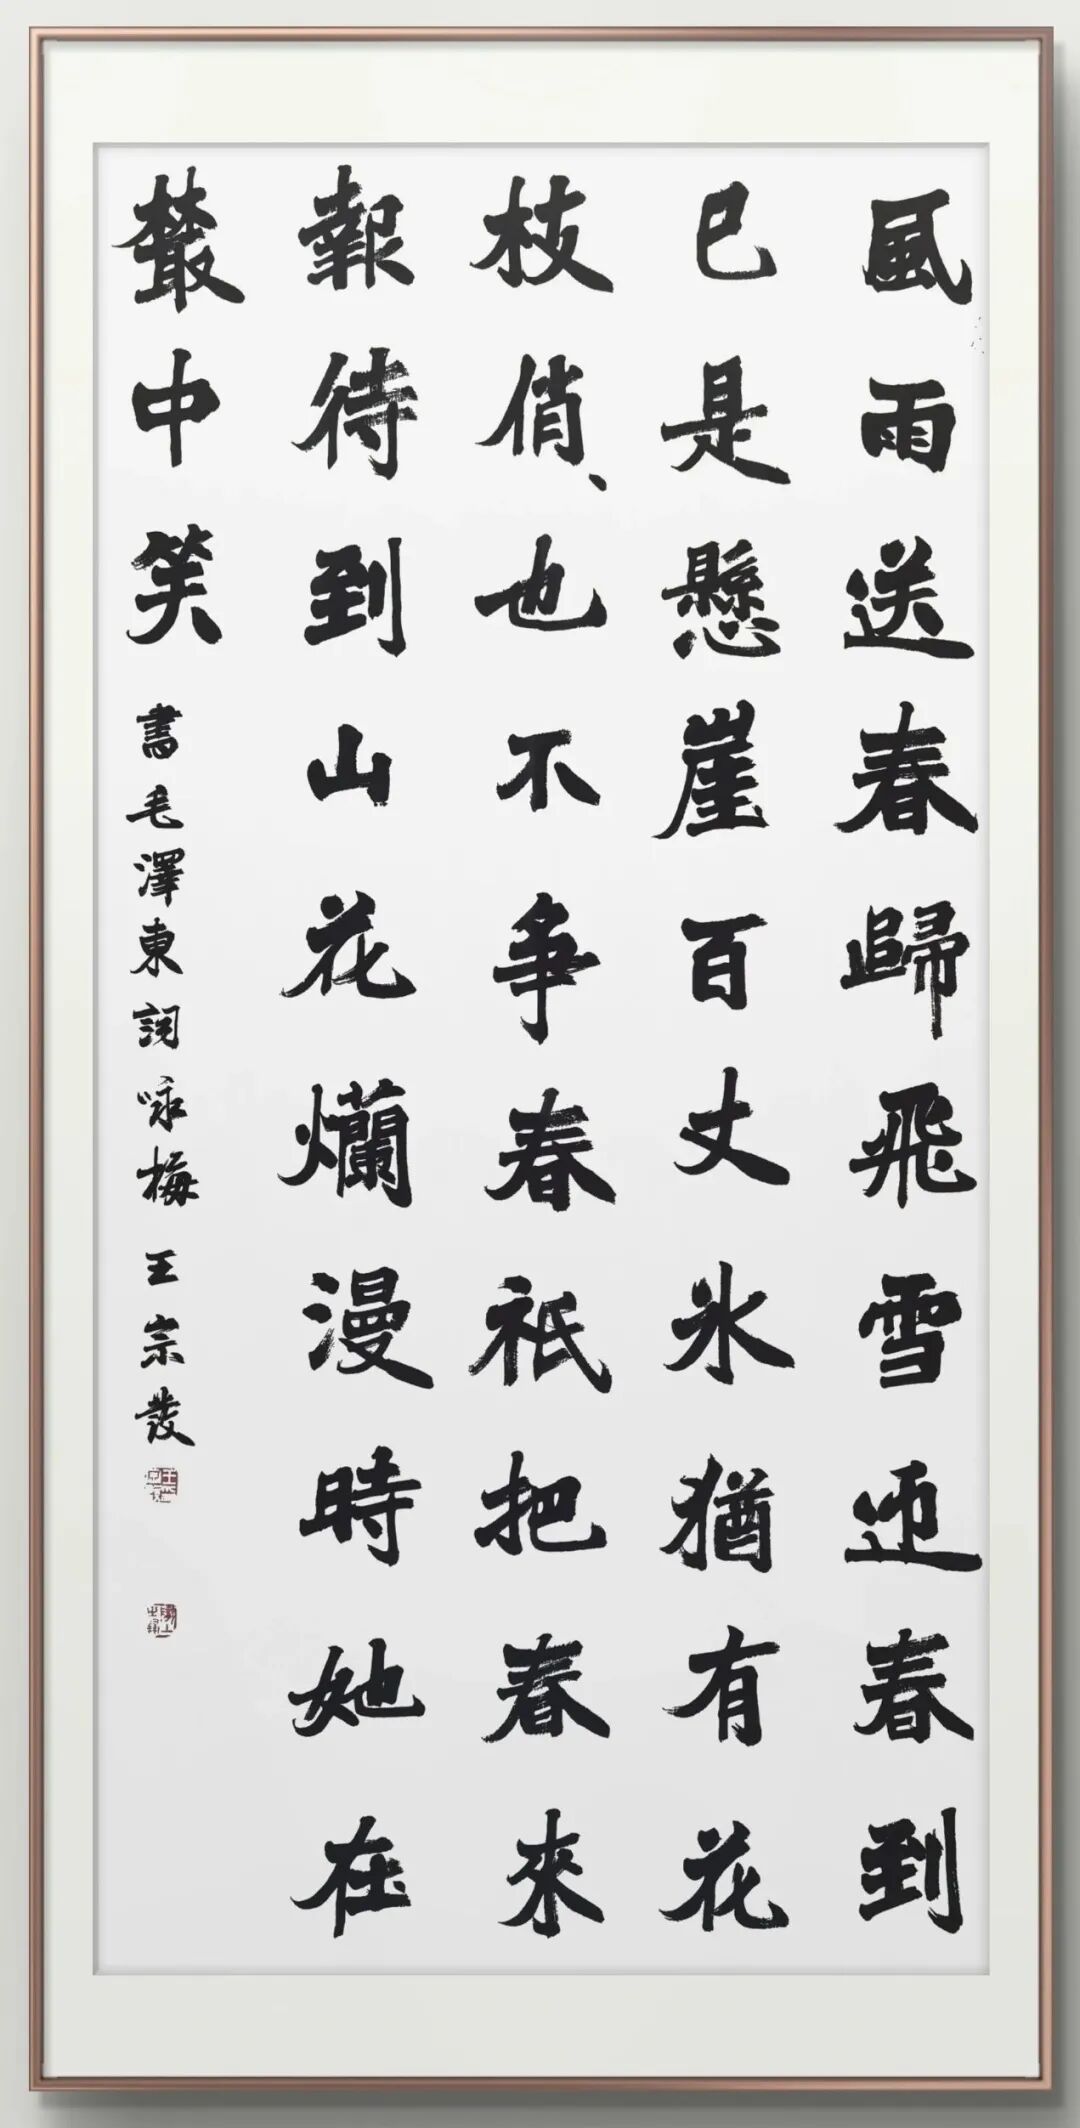 風雨送春歸飛雪迎春到
已是懸崖百丈氷猶有花
枝俏、也不爭春祇把春來
報待到山花爛漫時她在
叢中笑 書毛澤東詞咏梅 王宗發